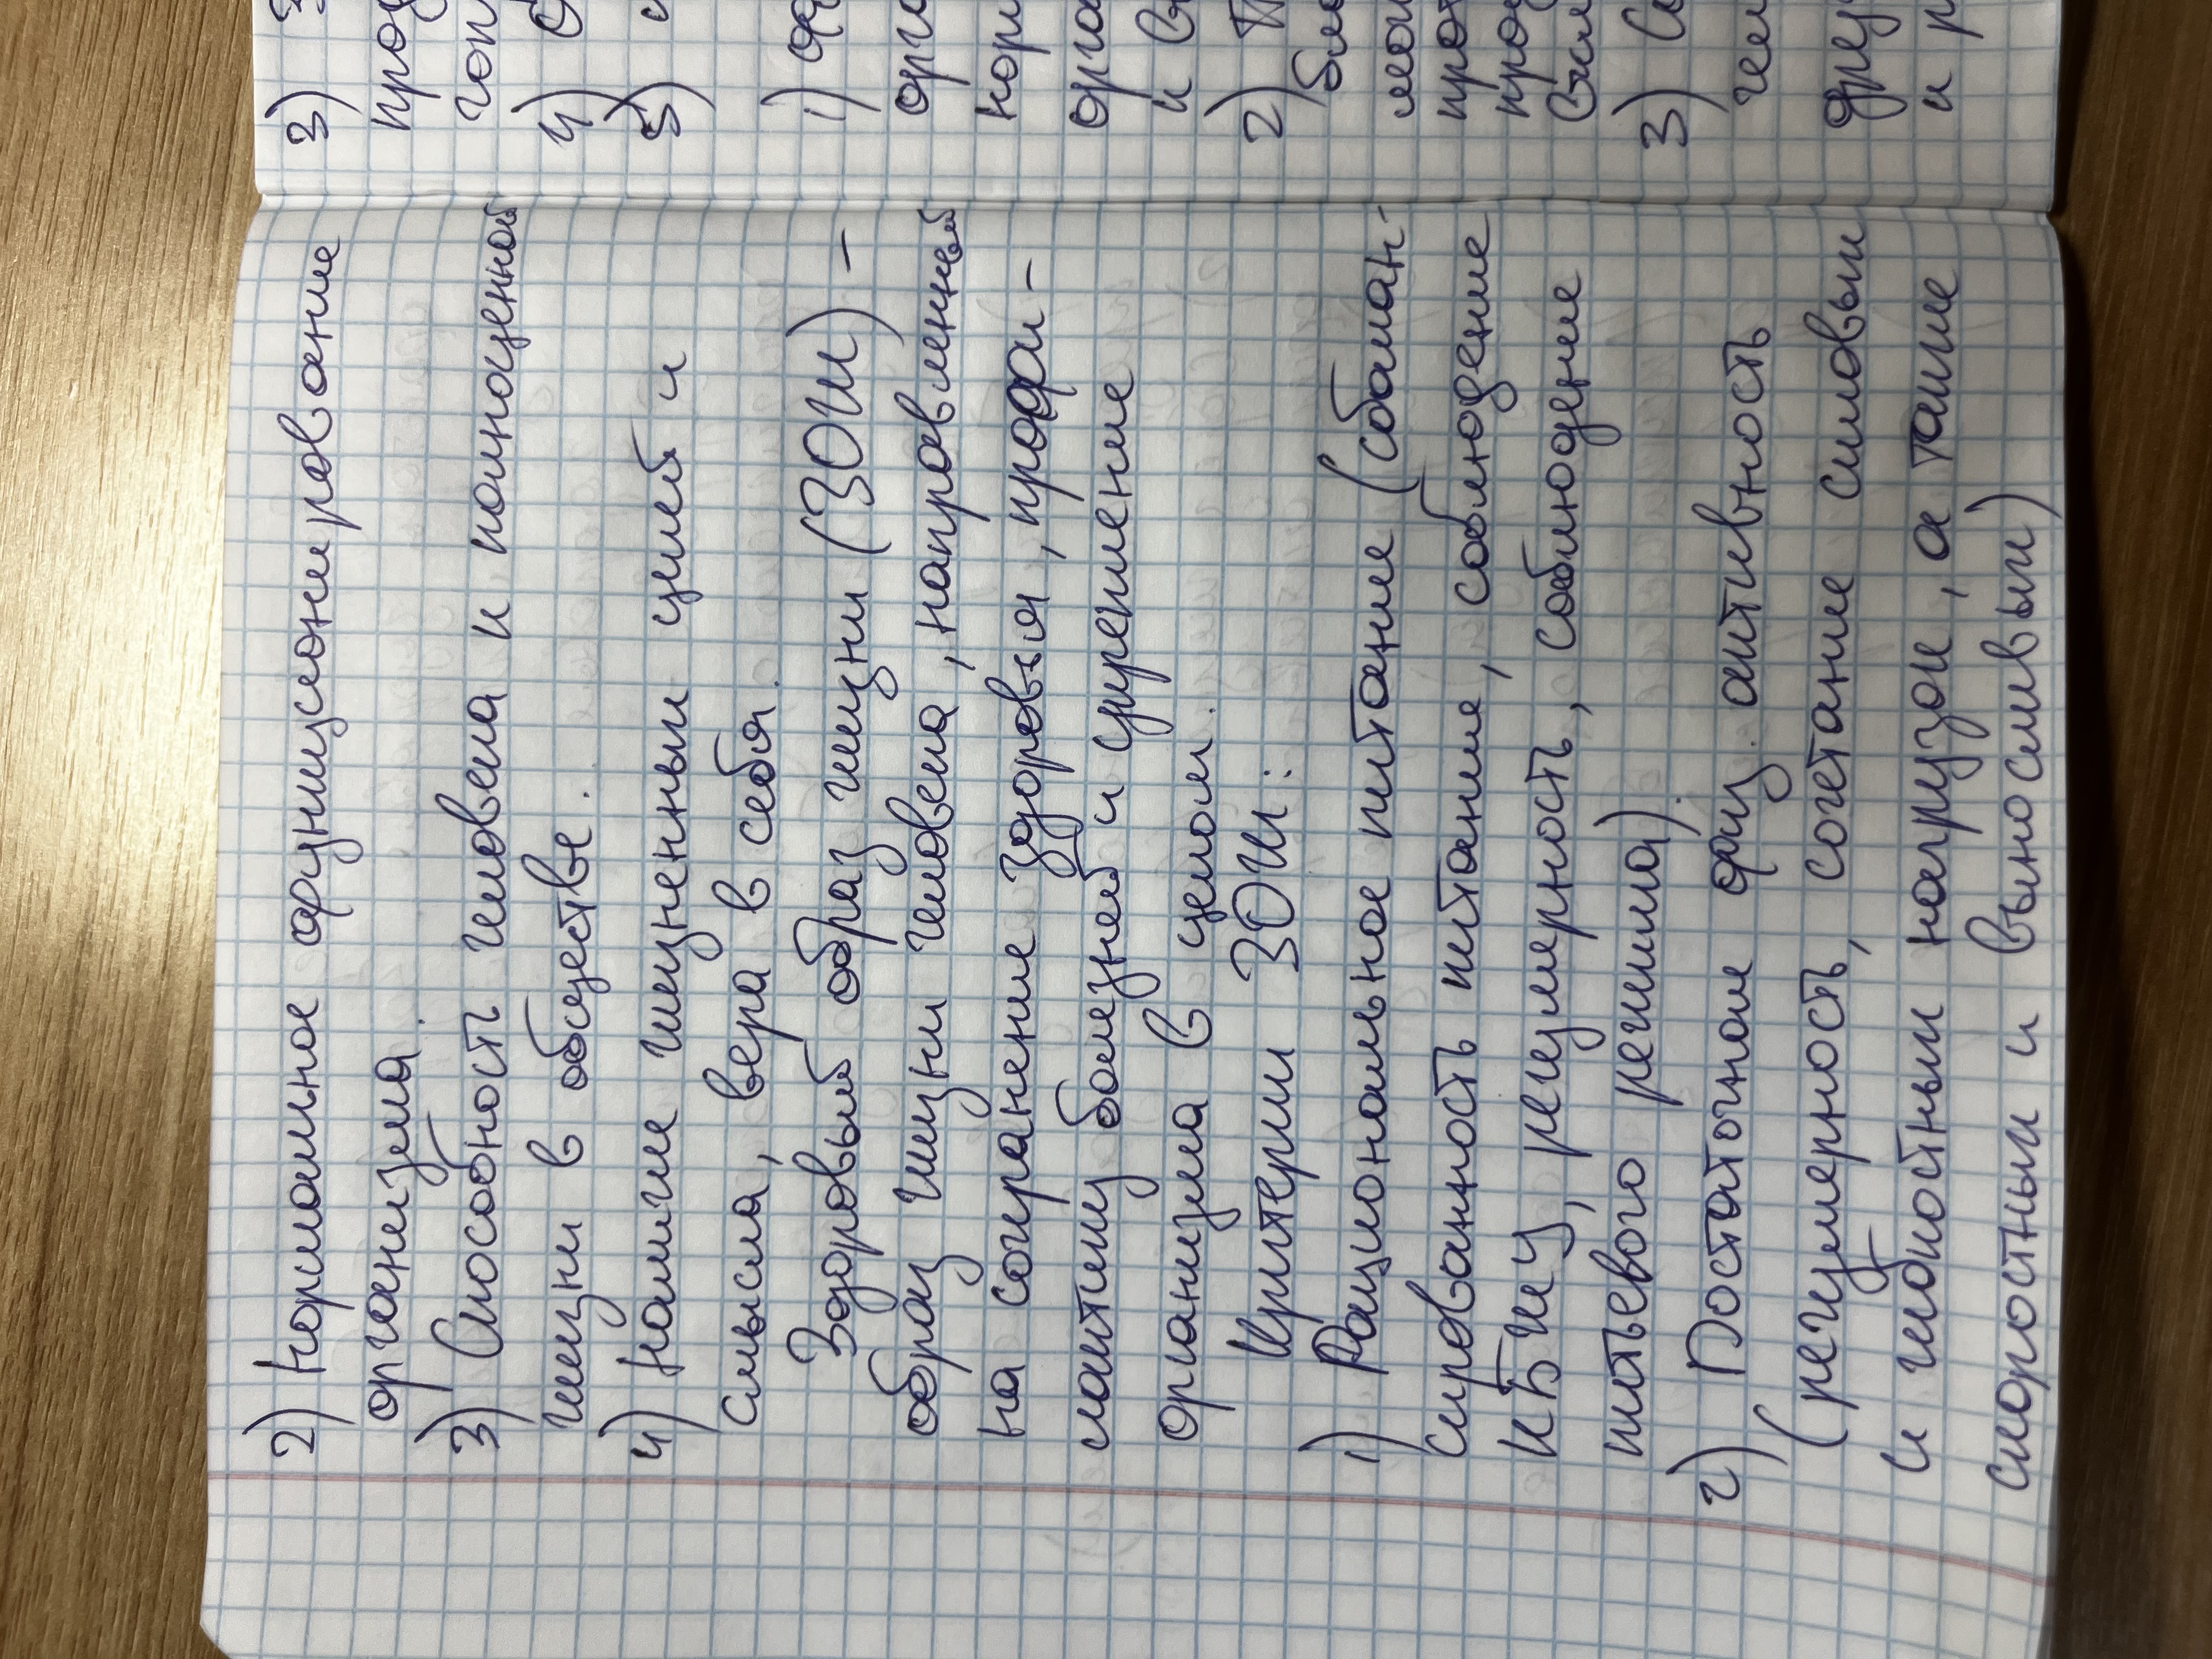 2) Нормальное функционирование
организма.
3) Способность человека к полноценной
жизни в обществе.
4) Наличие жизненных целей и
смысла, вера в себя.
Здоровый образ жизни (ЗОЖ) –
образ жизни человека, направленный
на сохранение здоровья, профи-
лактику болезней и укрепление
организма в целом.
Критерии ЗОЖ:
1) Рациональное питание (сбалан-
сированность питание, соблюдение
КБЖУ, регулярность, соблюдение
питьевого режима).
2) Достаточная физ. активность
(регулярность, сочетание силовых
и гибкостных нагрузок, а также
скоростных и выносливых)
3)
4)
5)
1)
орга
норм
орга
и в
2)
3)
и р